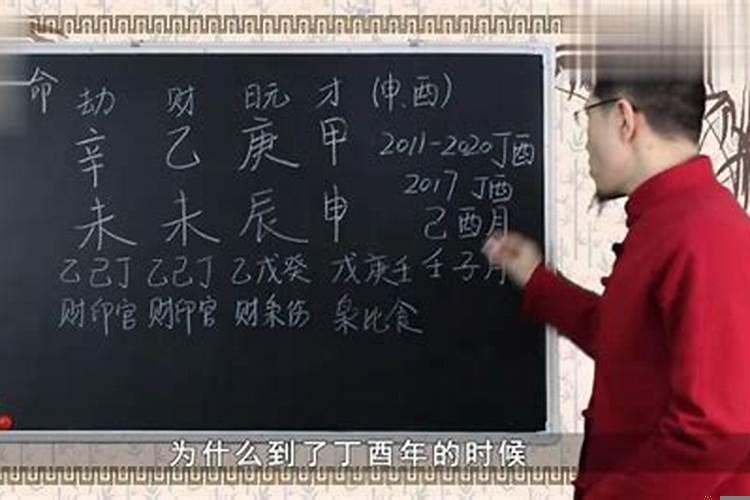 命 劫 财 日元 才 (申.酉)
辛 乙 庚 甲 2011-2020丁酉
2017 丁酉
未 未 辰 申 己酉月
乙己丁 乙己丁 乙戊癸 戊庚壬 壬子月
财印官 财印官 财枭伤 枭比食
为什么到了丁酉年的时候